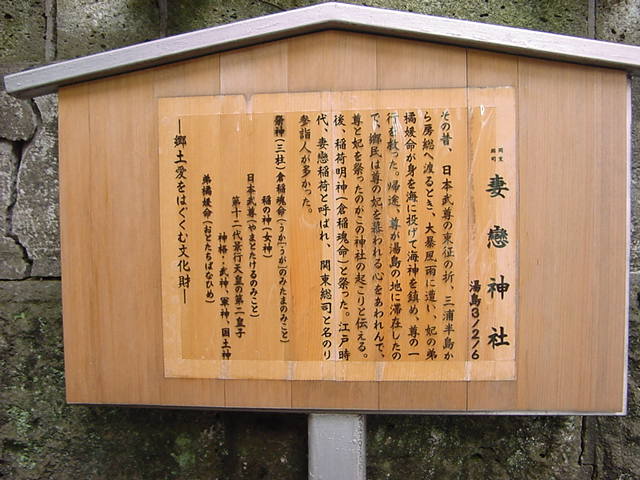 関東総司
妻戀神社
湯島3/2/6
その昔、日本武尊の東征の折、三浦半島か
ら房総へ渡るとき、大暴風雨に遭い、妃の弟
橘媛命が身を海に投げて海神を鎮め、尊の一
行を救った。帰途、尊が湯島の地に滞在したの
で、郷民は尊の妃を慕われる心をあわれんで、
尊と妃を祭ったのがこの神社の起こりと伝える。
後、稲荷明神（倉稲魂命）と祭った。江戸時
代、妻恋稲荷と呼ばれ、関東総司と名のり
参詣人が多かった。
祭神（三社）倉稲魂命（うか（うが）のみたまのみこと）
稲の神（女神）
日本武尊（やまとたけるのみこと）
第十二代景行天皇の第二皇子
神格・武神、軍神、国土神
弟橘媛命（おとたちばなひめ）
―郷土愛をはぐくむ文化財―